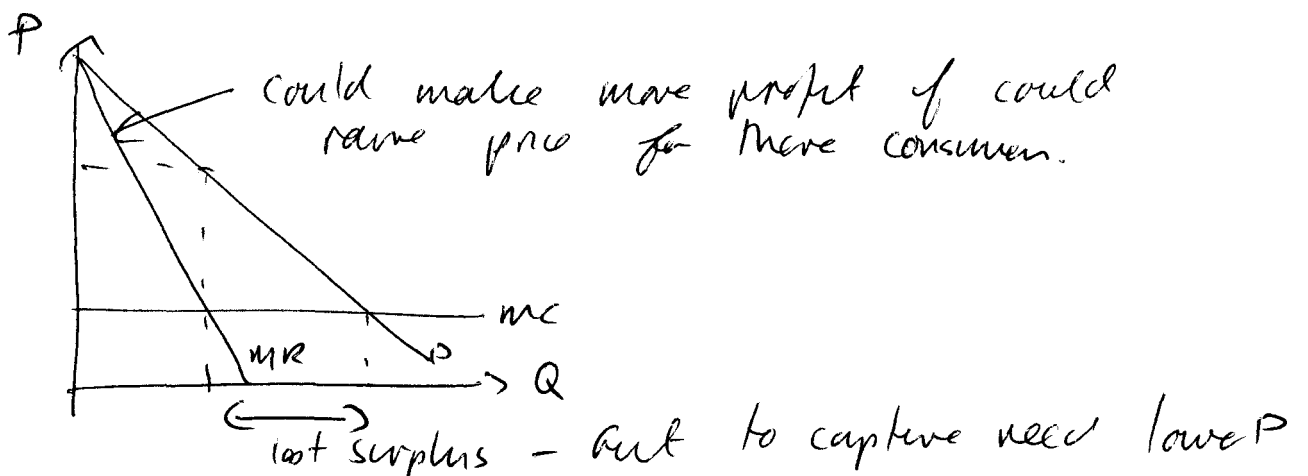 P
could make more profit if could
raise price for these consumers.
MC
MR
D
Q
lost surplus - but to capture need lower P